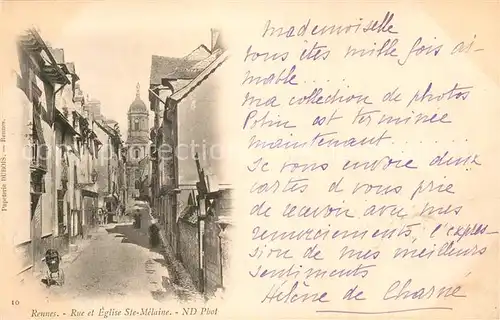 Mademoiselle
vous êtes mille fois ai-
mable....
Ma collection de photos
Potin est terminée
maintenant.....
Je vous envoie deux
cartes et vous prie
de recevoir avec mes
remerciements, l'expres-
sion de mes meilleurs
sentiments
Hélène de Charné
Papeterie DUBOIS. — Rennes.
10
Rennes. - Rue et Église Ste-Mélaine. - ND Phot